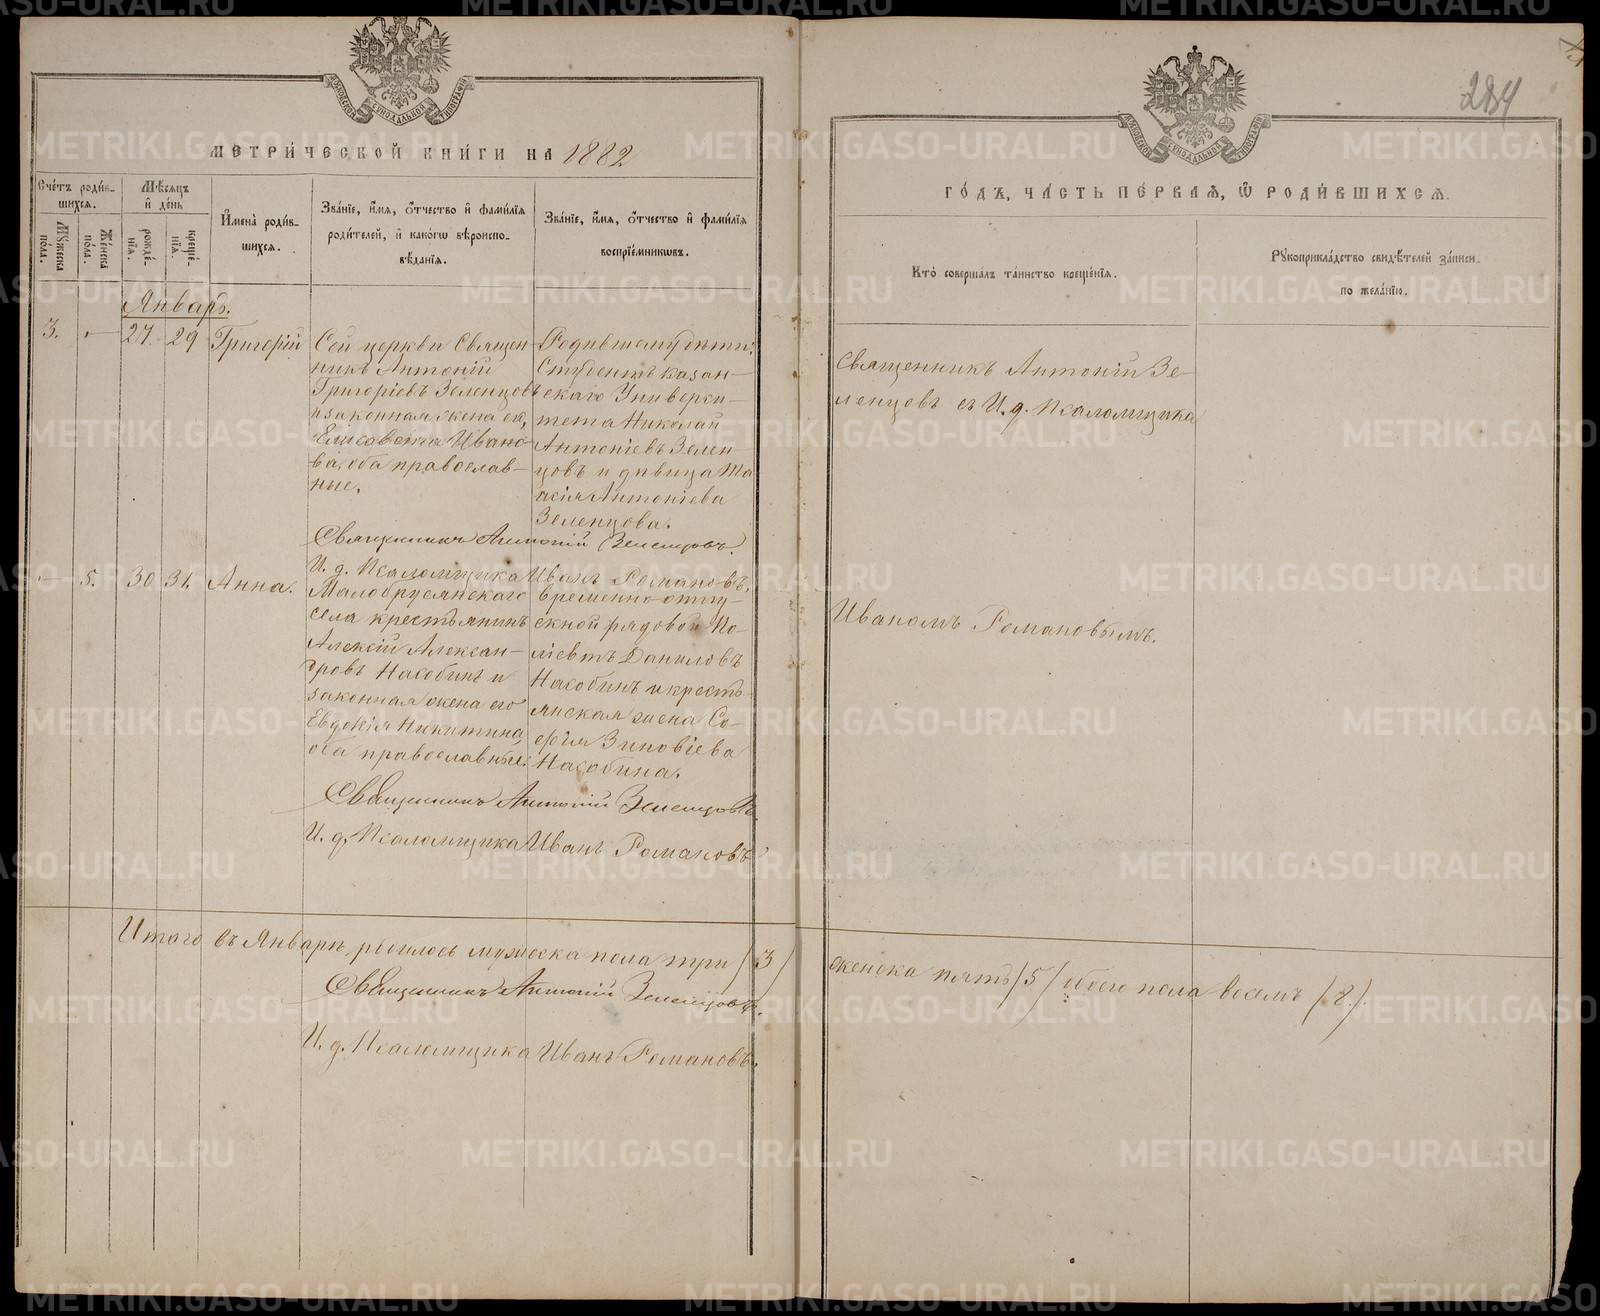 МЕТРИ́ЧЕСКОЙ КНИ́ГИ НА 1882
Сче́тъ роди́в-
шихся.
Мѣ́сяцъ
и҆ де́нь
Му́жеска
по́ла.
Же́нска
по́ла.
рожде́-
нїя.
креще́-
нїя.
И҆мена̀ роди́в-
шихся.
Зва́нїе, и҆́мя, ѻ҆́тчество и҆ фами́лїя
роди́телей, и҆ како́гѡ вѣроиспо-
вѣ́данїя.
Зва́нїе, и҆́мя, ѻ҆́тчество и҆ фами́лїя
воспрїе́мникѡвъ.
Январь.
3.
-
27.
29
Григорій
Сей церкви Священ-
никъ Антоній
Григоріевъ Зеленцовъ
и законная жена его,
Елисавета Ивано-
ва, оба православ-
ные.
Родившемуся дѣти:
Студентъ Казан-
скаго Универси-
тета Николай
Антоніевъ Зелен-
цовъ и дѣвица Та
исія Антоніева
Зеленцова.
Священникъ Антоній Зеленцовъ.
И. д. Псаломщика Иванъ Романовъ.
-
5.
30
31.
Анна.
Малобрусянскаго
села крестьянинъ
Алексій Алексан-
дровъ Насобинъ и
законная жена его
Евдокія Никитина
оба православные.
Временно-отпу-
скной рядовой По-
ліевтъ Даниловъ
Насобинъ и кресть-
янская жена Со-
фія Зиновіева
Насобина.
Священникъ Антоній Зеленцовъ.
И. д. Псаломщика Иванъ Романовъ
Итого въ Январѣ родилось мужеска пола три (3)
Священникъ Антоній Зеленцовъ.
И. д. Псаломщика Иванъ Романовъ.
284
ГО́ДЪ, ЧА́СТЬ ПЕ́РВАЯ, Ѡ҆ РОДИ́ВШИХСЯ.
Кто̀ соверша́лъ та́инство креще́нїя.
Рукоприкла́дство свидѣ́телей за́писи
по жела́нїю.
Священникъ Антоній Зе-
ленцовъ съ И. д. Псаломщика
Иваномъ Романовымъ.
женска пять (5) обоего пола восемь (8).
METRIKI.GASO-URAL.RU